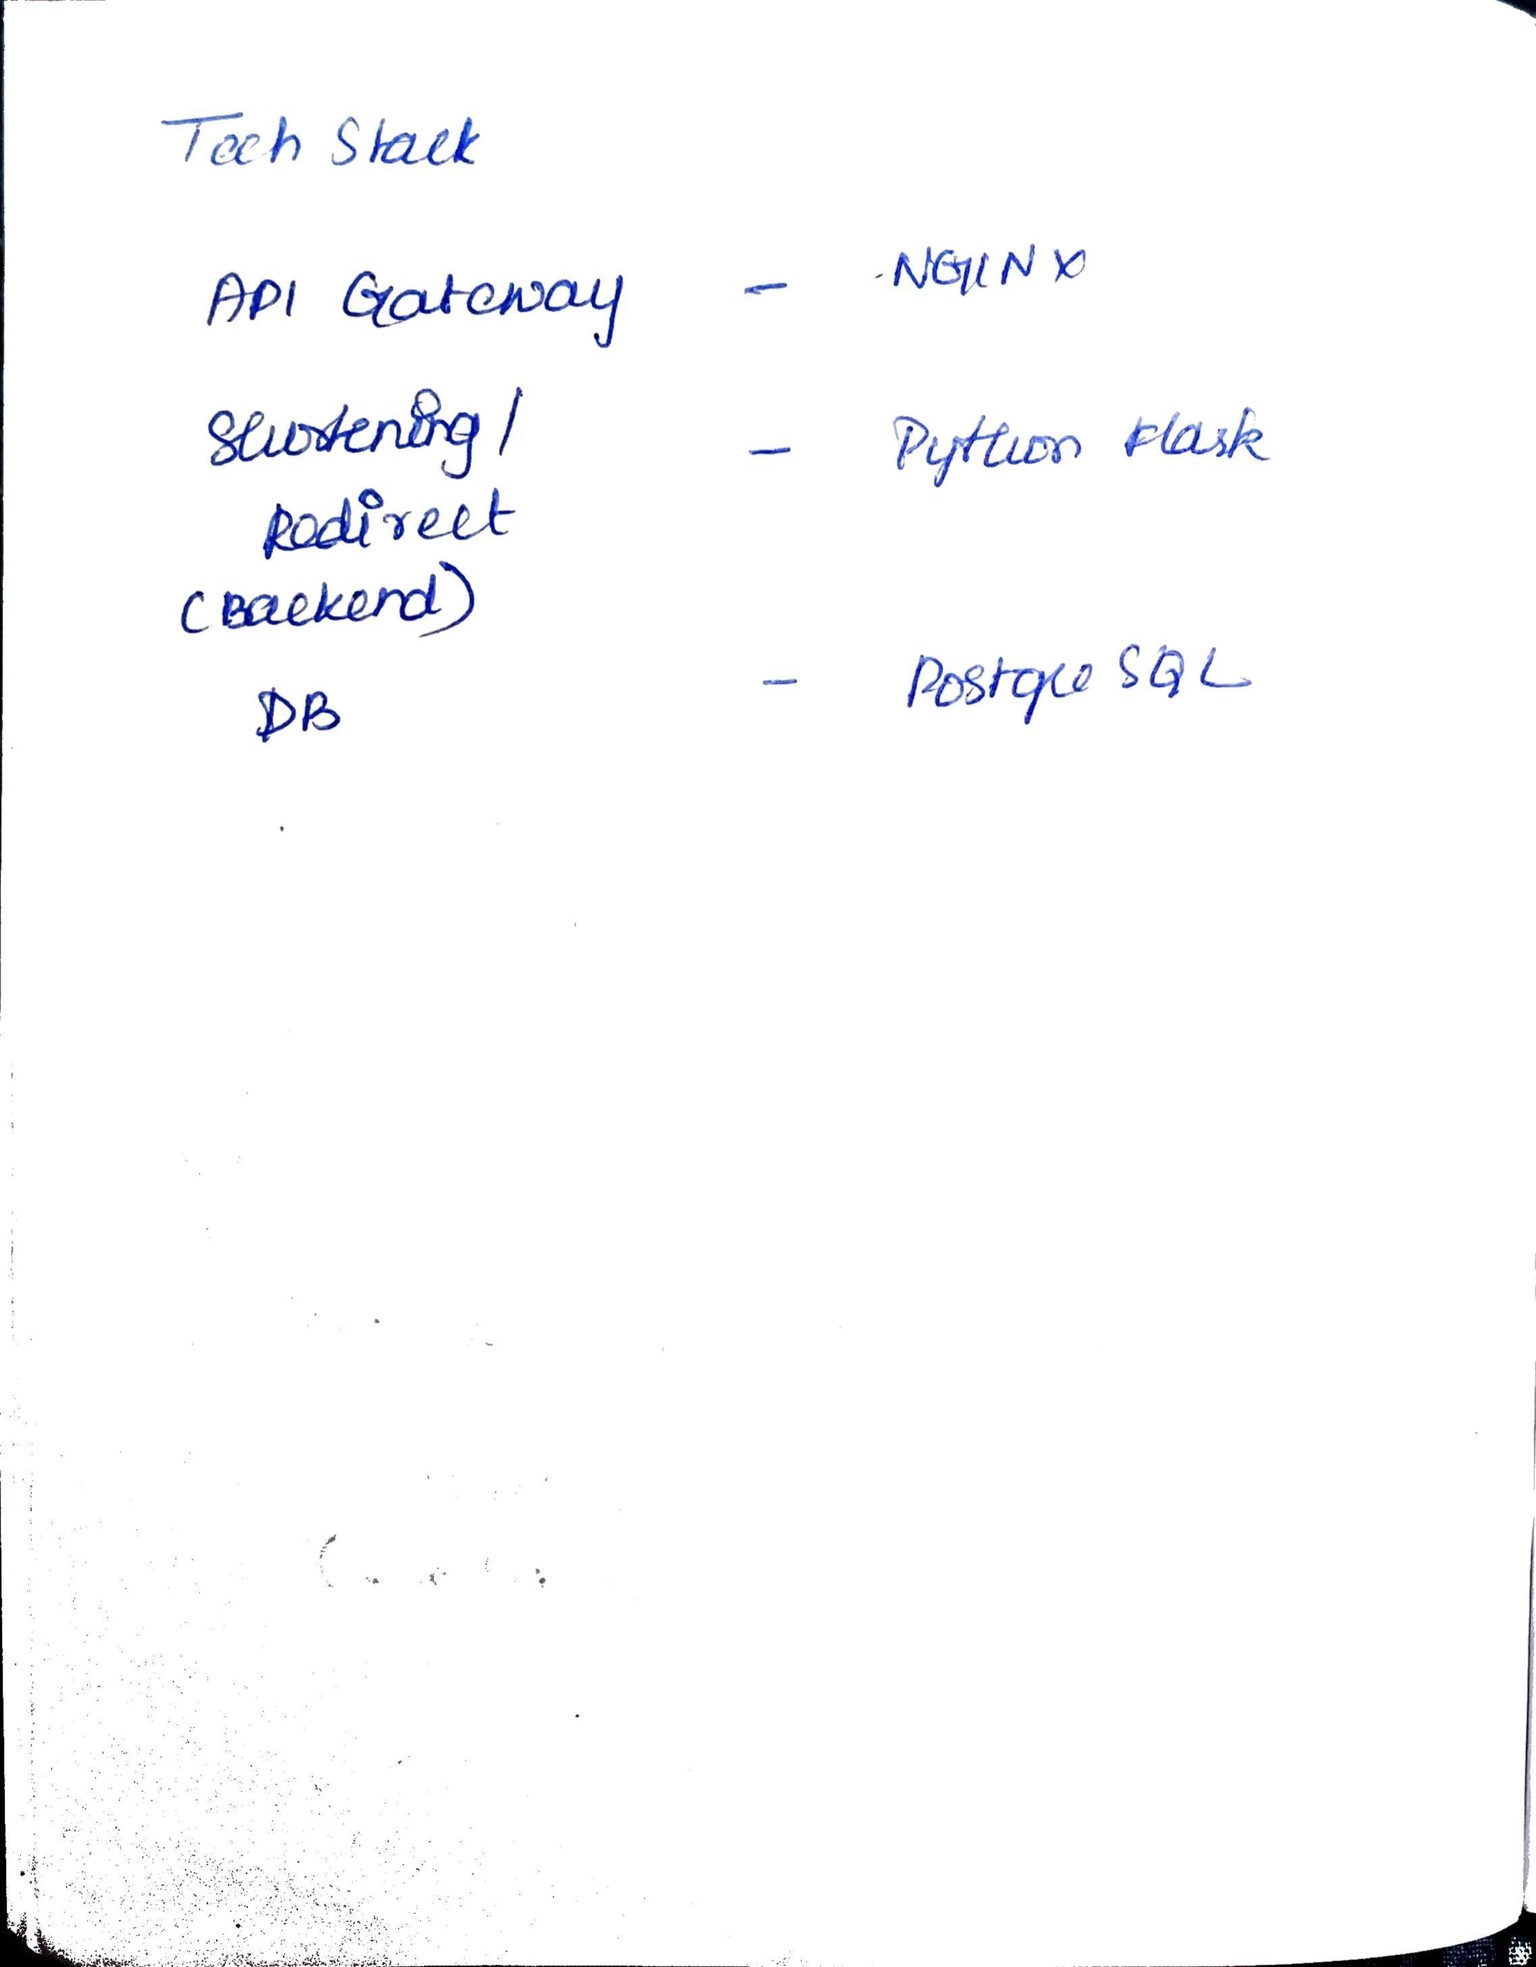 Tech Stack
API Gateway - NGINX
Shortening/ - Python Flask
Redirect
(Backend)
DB - Postgre SQL